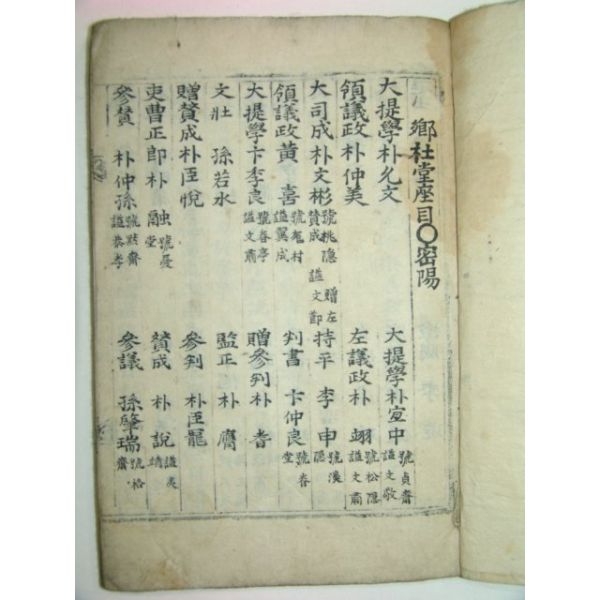 鄉社堂座目○密陽
大提學朴允文
大提學朴宜中 號貞齋 謚文敬
領議政朴仲美
左議政朴翊 號松隱 謚文肅
大司成朴文彬 號桃隱 贈左贊成 謚文節
持平 李申 號
領議政黃喜 號厖村 謚翼成
判書 卞仲良 號春堂
大提學卞季良 號春亭 謚文肅
贈參判朴耆
文壯 孫若水
監正朴
贈贊成朴臣悅
參判 朴臣
吏曹正郎朴融 號憂堂
贊成 朴說 謚夷靖
參贊 朴仲孫 號默齋 謚恭孝
參議 孫肇瑞 號格齋